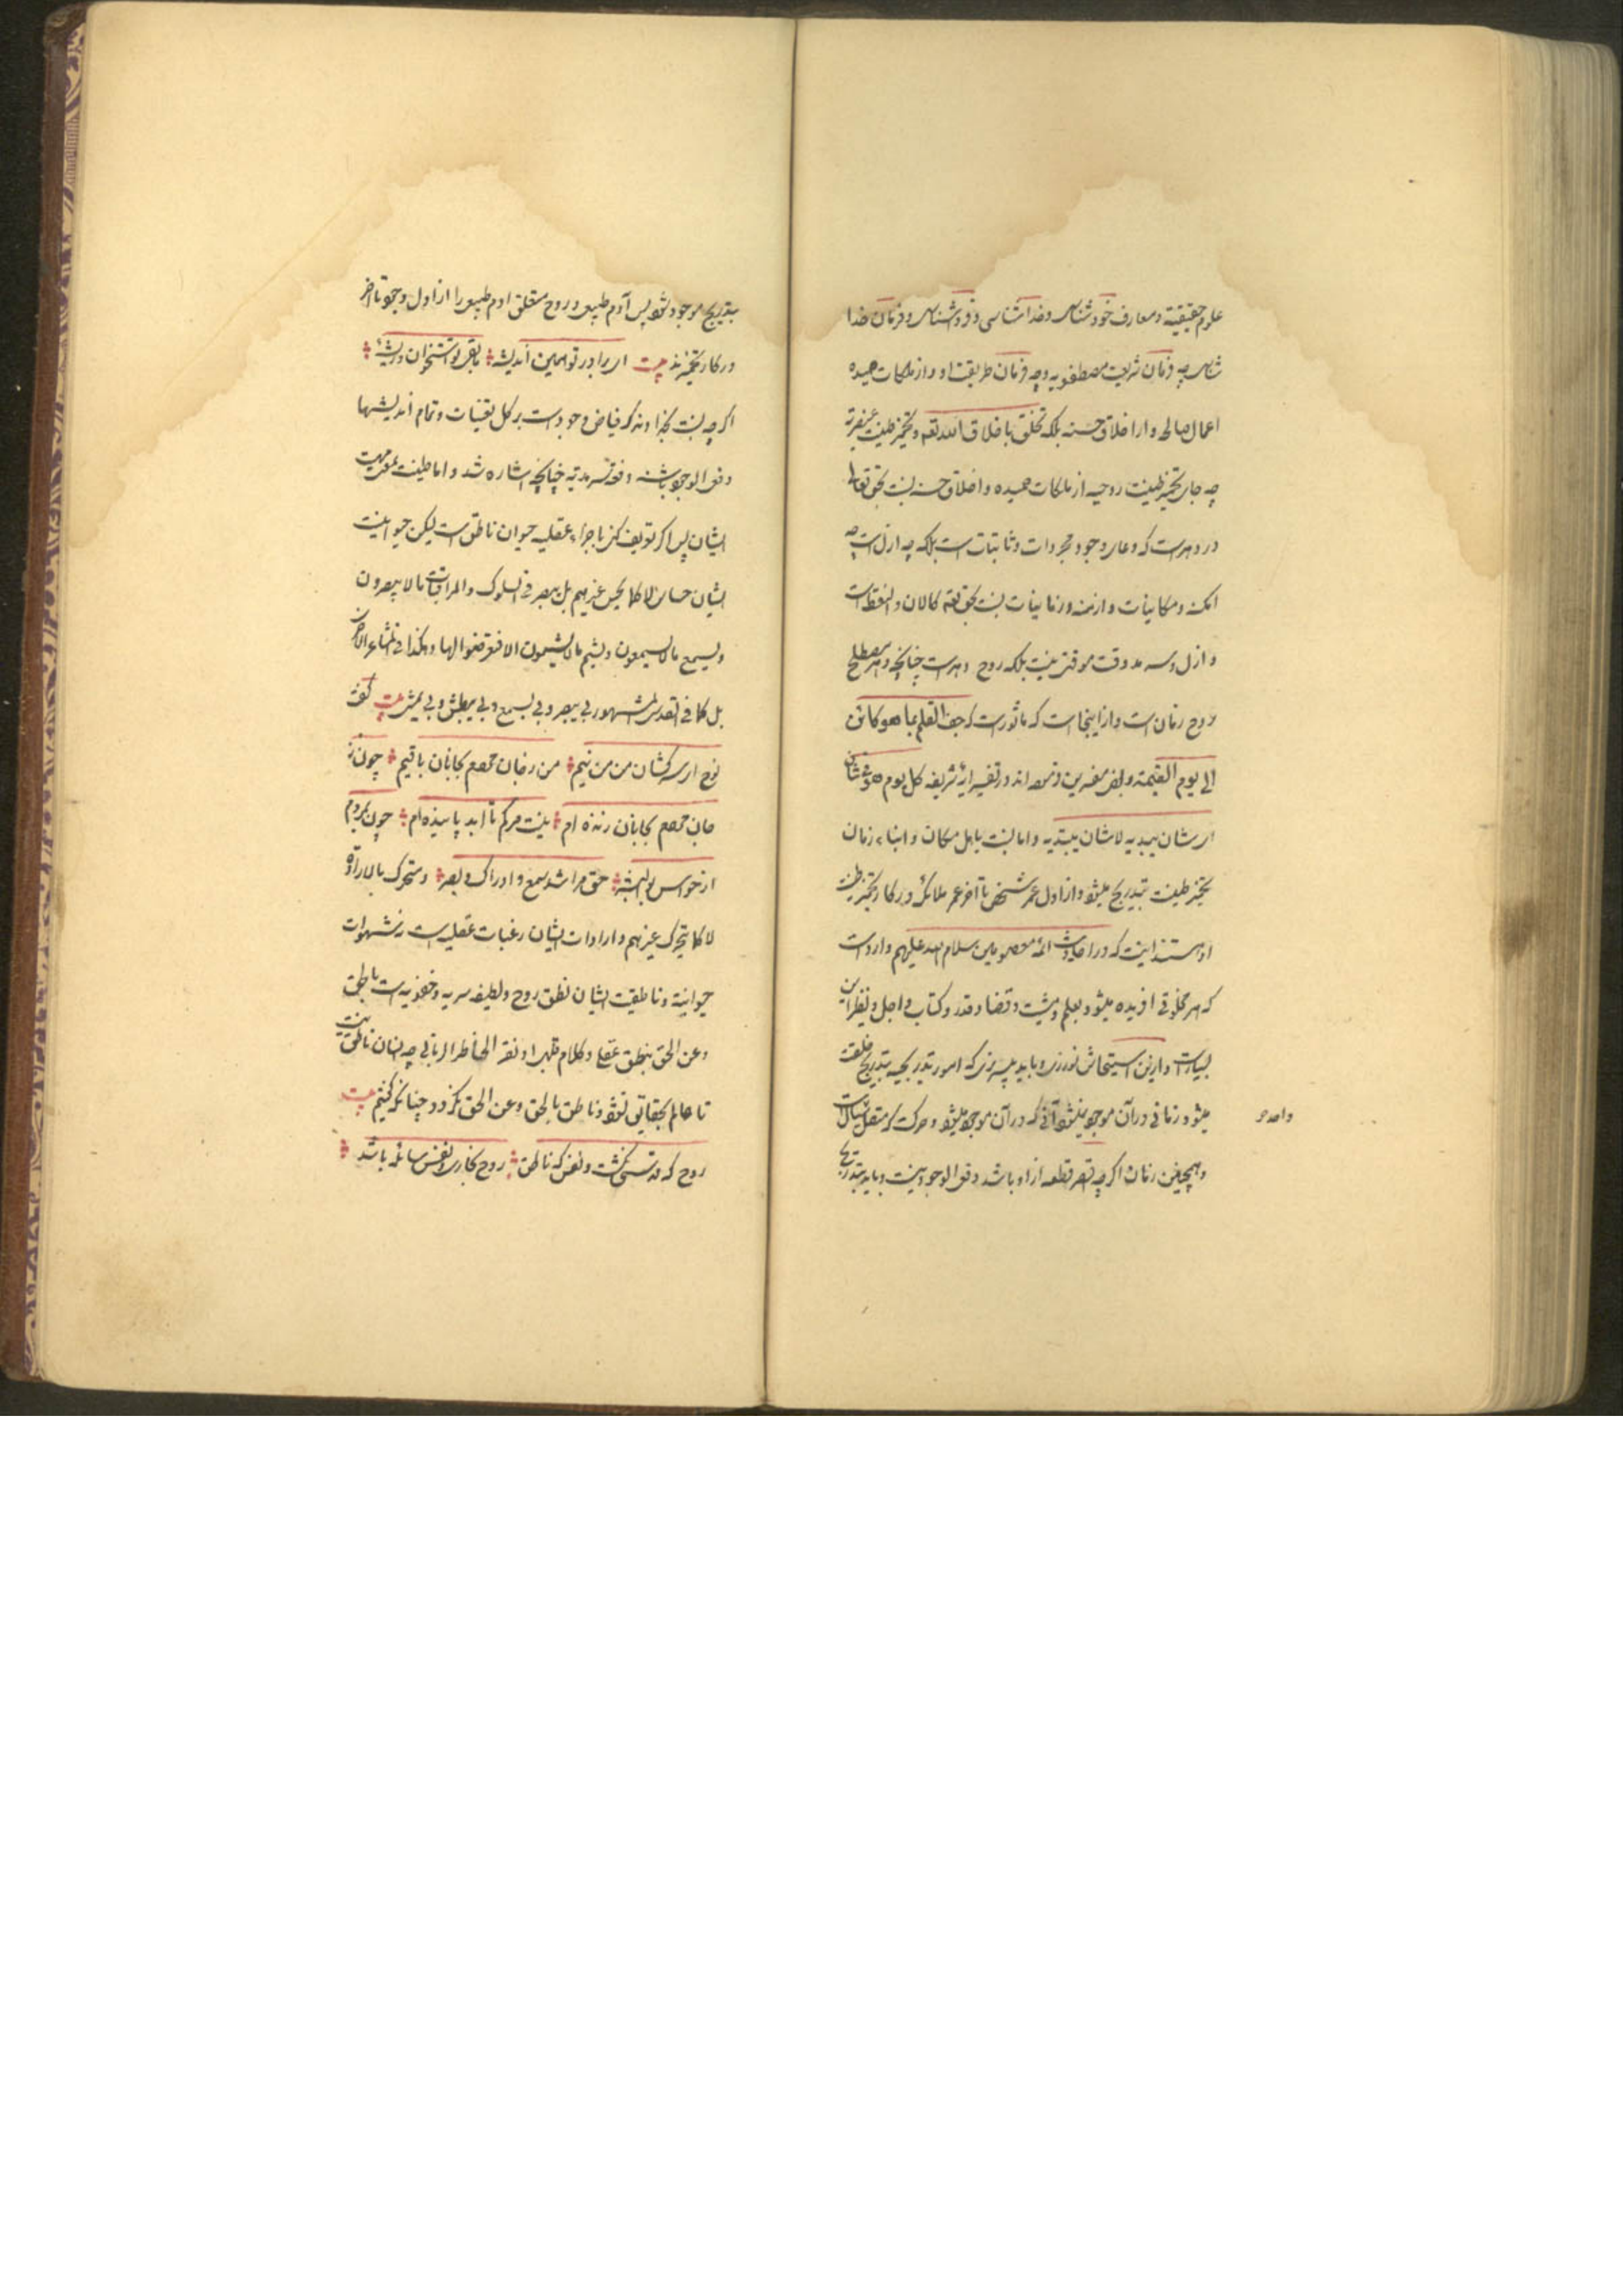 علوم حقیقیة و معارف خود شناسی و خدا شناسی و فرود شناسی و فرمان خدا
شناسی چه فرمان شریعت مصطفویه و چه فرمان طریقت او و از ملکات حمیده
اعمال صالحه و از اخلاق حسنه بلکه تخلق باخلاق الله تعه و تخمیر طینت عنصریة
چه جای تخمیر طینت روحیه از ملکات حمیده و اخلاق حسنه نسبت بحق تعالی
در دهر است که وعای وجود مجردات و ثابتات است بلکه چه ازل است چه
امکنه و مکانیات و ازمنه و زمانیات نسبت بحق تعه کالان و النقطه است
و ازل و سرمد وقت موقتی نیست بلکه روح دهر است چنانچه دهر مصطلح
روح زمان است و از اینجاست که ماثور است که جف القلم بما هو کائن
الی یوم القیمة و بعض مفسرین فرموده اند در تفسیر ایه شریفه کل یوم هو فی شان
ای شان یبدیه لا شان یبتدیه و اما نسبت باهل مکان و ابناء زمان
تخمیر طینت بتدریج میشود و از اول عمر شخص تا آخر عمر ملائکه در کار تخمیر طینت
او هستند اینست که در احادیث ائمه معصومین سلام الله علیهم وارد است
که هر مخلوقی افریده میشود بعلم و مشیت و قضا و قدر و کتاب و اجل و نظیر این
بسیار است و ازین استیحاش نورزی و باید بپرهیزی که امور تدریجیه بتدریج خلقت
میشود زمانی در آن موجود نمیشود آنی که در آن موجود میشود و حرکت که متصل سیال است
واحد
و همچنین زمان اگرچه اقصر قطعه از او باشد دفعی الوجود نیست و باید بتدریج
بتدریج موجود شود پس آدم طبیعی و روح متعلق ادم طبیعی را از اول وجود تا اخر
در کار تخمیرند بیت ای برادر تو همین اندیشه ما بقی تو استخوان و ریشه
اگرچه نسبت بخداوند که فیاض وجود است بر کل تعینات و تمام اندیشها
دفعی الوجود باشند و فوقش سرمدیه چنانچه اشاره شد و اما طینت بمعنی مهیت
ایشان پس اگر تعریف کنی باجزاء عقلیه حیوان ناطق است لیکن حیوانیت
ایشان حساس لا کما یحس غیرهم بل یبصر فی السلوک و المراقبات ما لا یبصرون
و یسمع ما لا یسمعون و یشم ما لا یشمون الا فتعرضوا لها و هکذا فی المشاعر الاخری
بل کما فی القدسی المشهور بی یبصر و بی یسمع و بی یبطش و بی یمشی بیت گفت
نوح ای سرکشان من من نیم من ز جان مردم بجانان باقیم چون ز
جان مردم بجانان زنده ام نیست مرگم تا ابد پاینده ام چون بمردم
از حواس بو البشر حق مرا شد سمع و ادراک و بصر و متحرک بالاراده
لا کما یتحرک غیرهم و ارادات ایشان رغبات عقلیه است نه شهوات
حیوانیة و ناطقیت ایشان نطق روح و لطیفه سریه و خفویه است بالحق
و عن الحق بنطق عقلی و کلام ظهرا و نقر الخاطر الربانی چه انسان ناطق نیست
تا عالم بحقایق نشود و ناطق بالحق و عن الحق نگردد چنانکه گفتیم بیت
روح که قدسی نگشت و نفس که ناطق روح بخاری و نفس سائله باشد